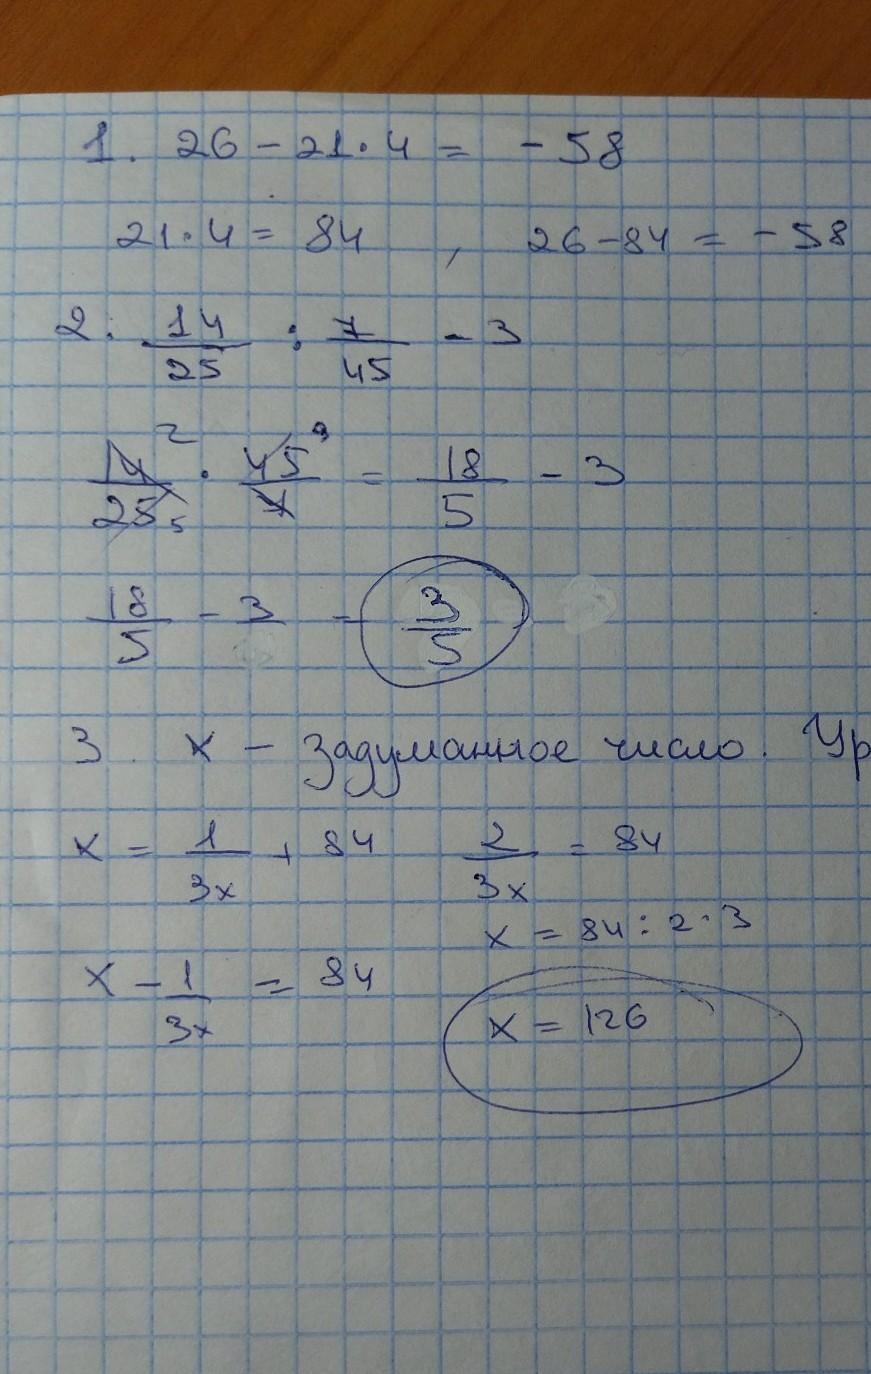 1. 26 - 21 · 4 = - 58
21 · 4 = 84 , 26 - 84 = - 58
2. 14/25 : 7/45 - 3
14/25 2 5 · 45/7 9 = 18/5 - 3
18/5 - 3 = 3/5
3. x - задуманное число. Ур
x = 1/3x + 84
x - 1/3x = 84
2/3x = 84
x = 84 : 2 · 3
x = 126